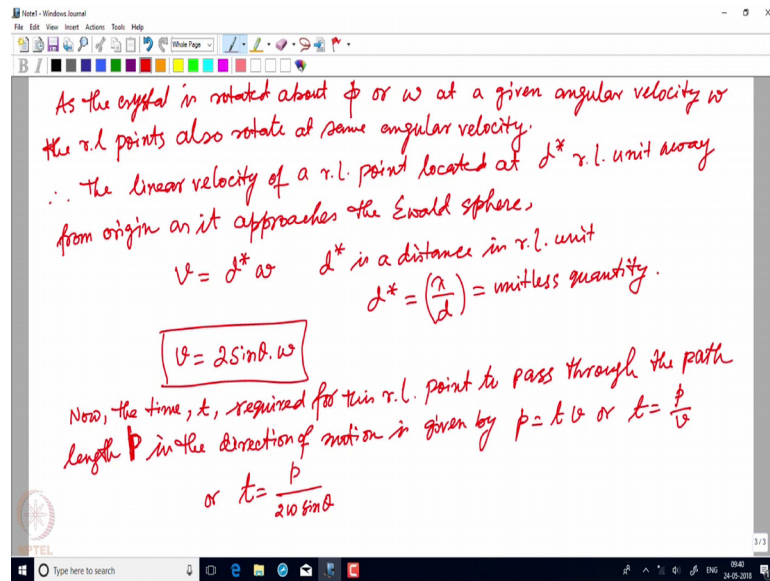 Note1 - Windows Journal
File Edit View Insert Actions Tools Help
Whole Page
B I
As the crystal is rotated about ϕ or ω at a given angular velocity w
the r.l points also rotate at same angular velocity.
∴ the linear velocity of a r.l. point located at d* r.l. unit away
from origin as it approaches the Ewald sphere,
v = d* w d* is a distance in r.l. unit
d* = (λ/d) = unitless quantity.
v = 2 sinθ. w
Now, the time, t, required for this r.l. point to pass through the path
length p in the direction of motion is given by p = t v or t = p/v
or t = p/2w sinθ
3/3
NPTEL
Type here to search
ENG
09:40
24-05-2018